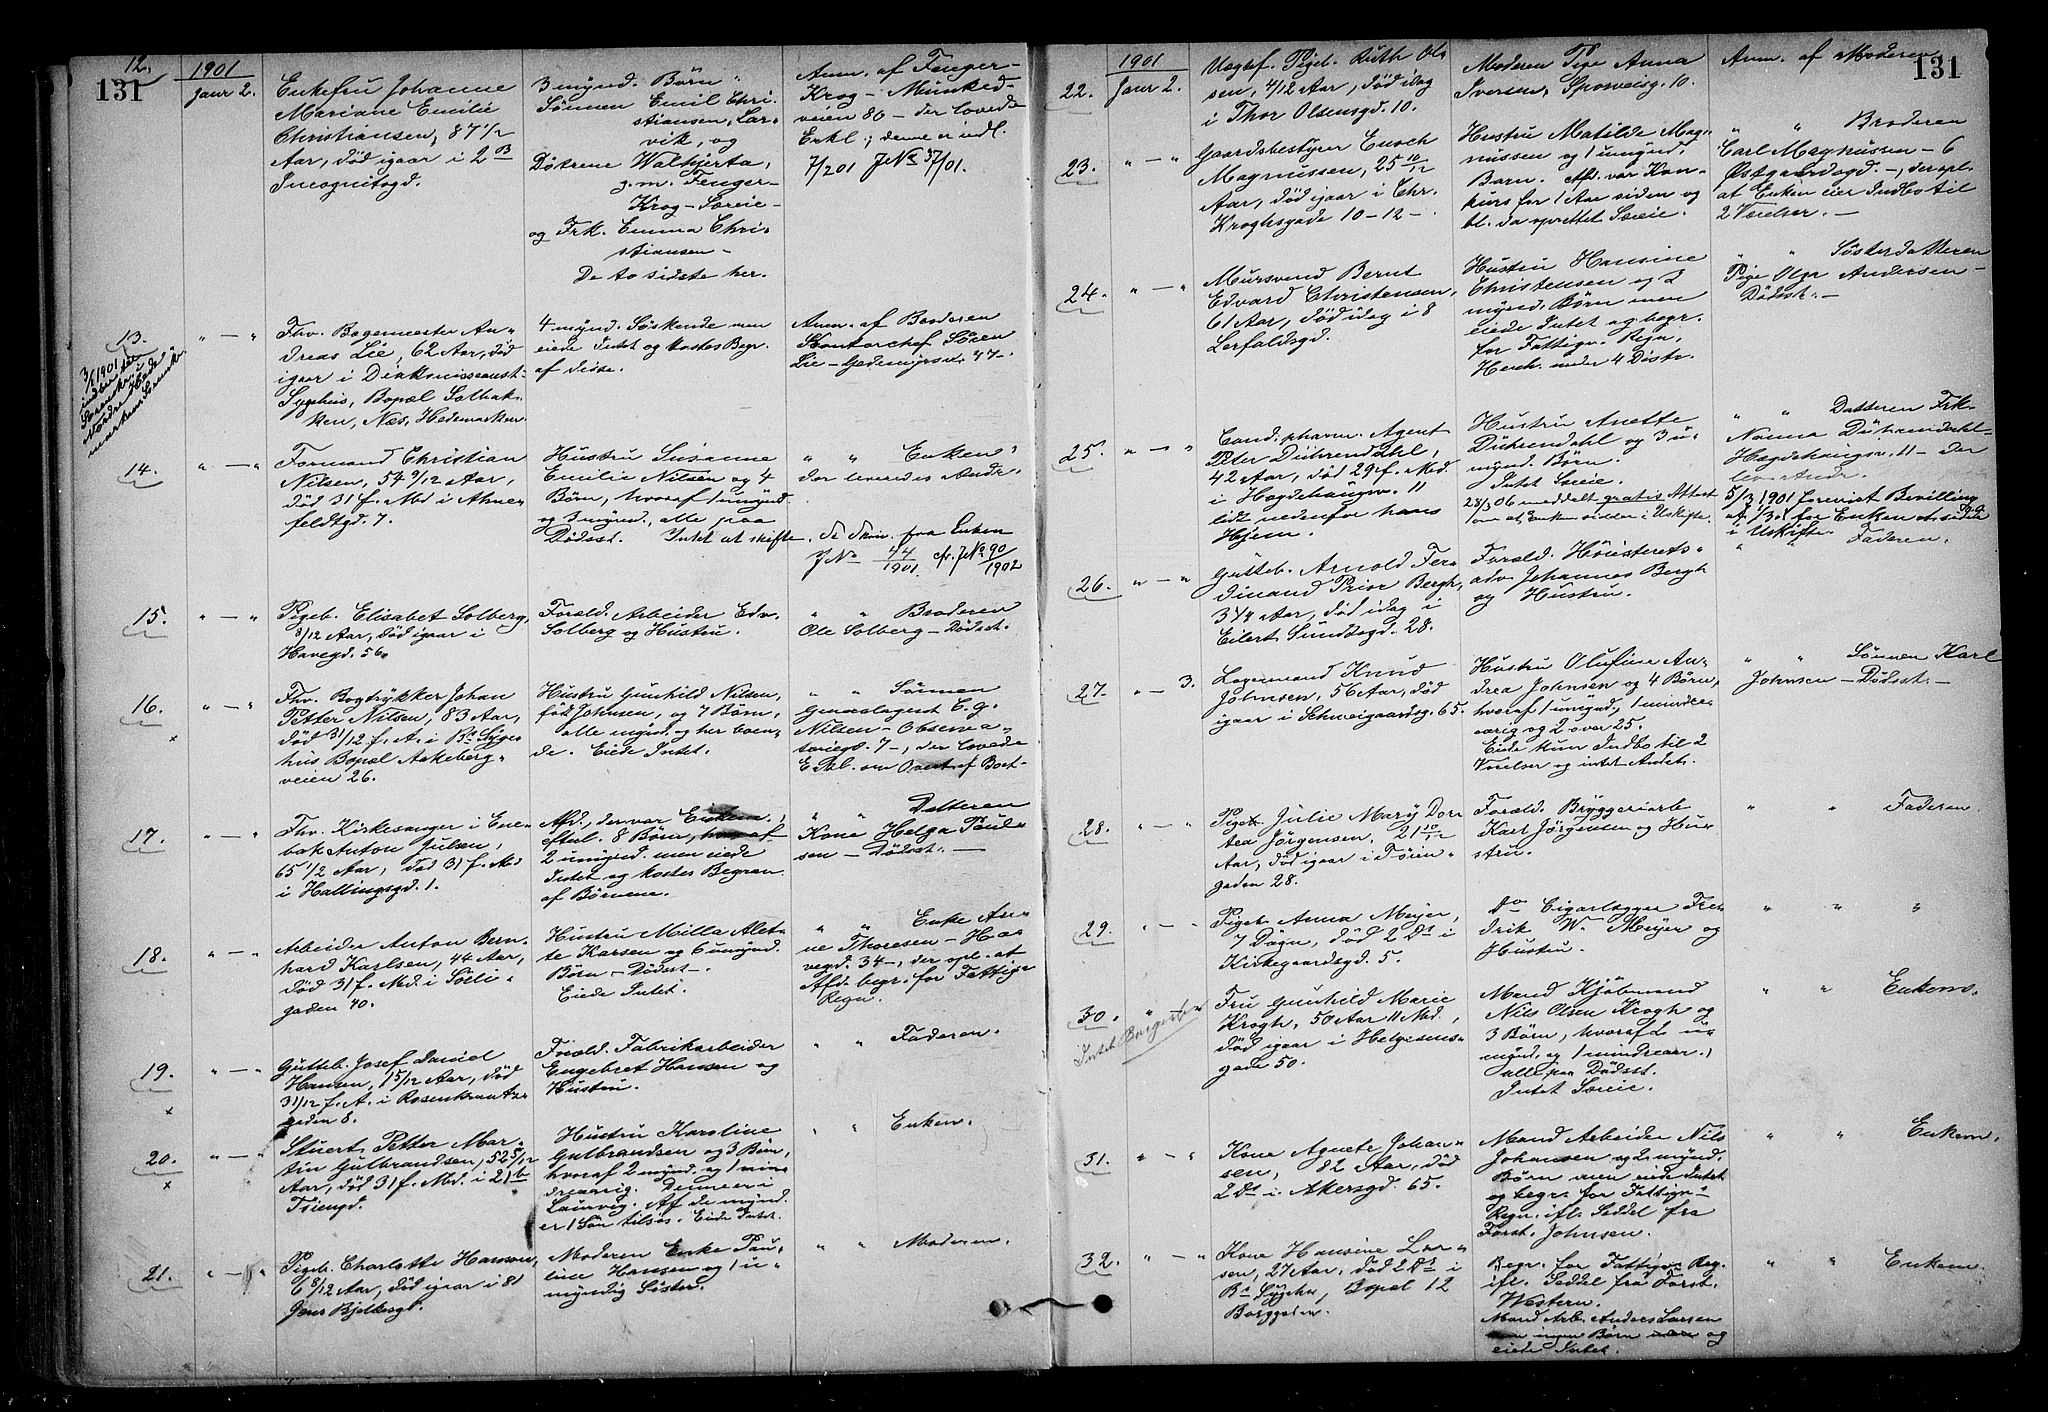 131
12.
1901
Janr 2.
Enkefru Johanne
Mariane Emilie
Christiansen, 87 1/2
Aar, død igaar i 2 B
Incognitogd.
3 mynd. Børn
Sønnen Emil Chri-
stiansen, Lar-
vik, og
Døtrene Walhjerta,
g.m. Fenger-
Krog - Særeie -
og Frk. Emma Chri-
stiansen -
De to sidste her.
Anm. af Fenger-
Krog - Munked-
veien 80 - der lovede
Erkl.; denne er indl.
7/2 01 J№ 37/01.
13.
" - "
Fhv. Bagemester An-
dreas Lie, 62 Aar, død
igaar i Diakonisseanst.
Sygehus, Bopæl Solbak-
ken, Næs, Hedemarken.
4 mynd. Søskende men
eiede Intet og kostes Begr.
af disse.
Anm. af Broderen
Kontorchef Søren
Lie - Gedemyrsv. 47 -.
14.
" - "
Formand Christian
Nilsen, 54 9/12 Aar,
død 31 f. Md i Ahle-
feldtgd. 7.
Hustru Susanne
Emilie Nilsen og 4
Børn, hvoraf 1 umynd.
og 3 mynd., alle paa
Dødsst. Intet at skifte.
" " Enken,
der leveredes Andr.
fra Enken
J№ 44/1901. cfr. J№ 90/1902
15.
" - "
Pigeb. Elisabet Solberg,
3/12 Aar, død igaar i
Havegd. 56.
Foræld. Arbeider Edv.
Solberg og Hustru.
" " Broderen
Ole Solberg - Dødsst.
16.
x
" - "
Fhv. Bogtrykker Johan
Petter Nilsen, 83 Aar,
død 31/12 f. A. i Bs Syge-
hus Bopæl Aakeberg-
veien 26.
Hustru Gunhild Nilsen,
fød Johnsen, og 7 Børn,
alle mynd. og her boen-
de. Eiede Intet.
" " Sønnen
Generalagent E. G.
Nilsen - Observa-
toriegd. 7 -, der lovede
Erkl. om af Boet -
17.
" - "
Fhv. Kirkesanger i Ene-
bak Anton Julsen,
65 1/2 Aar, død 31 f. Md
i Hallingsgd. 1.
Afd., der var Enkem.,
efterl. 8 Børn, hvoraf
2 umynd. men eiede
Intet og kostes Begrav.
af Børnene.
" " Datteren
Kone Helga Paul-
sen - Dødsst. -
18.
" - "
Arbeider Anton Bern-
hard Karlsen, 44 Aar,
død 31 f. Md. i Sølli-
gaden 40.
Hustru Milla Alet-
te Karsen og 6 umynd.
Børn - Dødsst. -
Eiede Intet.
" " Enke An-
ne Thoresen - Ha-
vegd. 34 -, der opl. at
Afd. begr. for Fattigv.
Regn.
19.
x
" - "
Gutteb. Josef Daniel
Hansen, 1 5/12 Aar, død
31/12 f. A. i Rosenkrantz-
gaden 8.
Foræld. Fabrikarbeider
Engebret Hansen og
Hustru.
" " Faderen.
20.
x
" - "
Stuert Petter Mar-
tin Gulbrandsen, 52 5/12
Aar, død 31 f. Md. i 21 b
Tøiengd.
Hustru Karoline
Gulbrandsen og 3 Børn,
hvoraf 2 mynd. og 1 min-
dreaarig. Denne er i
Laurvig. Af de mynd.
er 1 Søn tilsøs. Eiede Intet.
" " Enken.
21.
" - "
Pigeb. Charlotte Hansen,
6 8/12 Aar, død igaar i 81
Jens Bjelkesgt.
Moderen Enke Pau-
line Hansen og 1 u-
myndig Søster.
" " Moderen.
131
1901
22.
Janr 2.
Uægtef. Pigeb. Ruth Ol-
sen, 4/12 Aar, død idag
i Thor Olsensgd. 10.
Moderen Pige Anna
Iversen, Sporveisg. 10.
Anm. af Moderen
23.
" - "
Gaardsbestyrer Enoch
Magnussen, 25 11/12
Aar, død igaar i Chr.
Kroghsgade 10-12 -.
Hustru Matilde Mag-
nussen og 1 umynd.
Barn. Afd. var Kon-
kurs for 1 Aar siden og
bl. da oprettet Særeie.
" " Broderen
Carl Magnussen - 6
Østgaardsgd. -, der opl.
at Enken eier Indbo til
2 Værelser. -
24.
" - "
Mursvend Bernt
Edvard Christensen,
61 Aar, død idag i 8
Lerfaldsgd.
Hustru Hansine
Christensen og 2
mynd. Børn men
eiede Intet og begr.
for Fattigv. Regn,
Henh. under 4 Distr.
" " Søsterdatteren
Pige Olga Andersen -
Dødsst. -
25.
" - "
Cand. pharm. Agent
Peter Dührendahl,
42 Aar, død 29 f. Md.
i Hægdehaugsv. 11
lidt nedenfor hans
Hjem.
Hustru Anette
Dührendahl og 3 u-
mynd. Børn.
Intet Særeie.
28/3 06 meddelt gratis Attest
om at Enken sidder i Uskifte.
" " Datteren Frk.
Nanna Dührendahl -
Hægdehaugsv. 11 - der
lev. Andr.
5/3 1901 forevist Bevilling
for Enken at sidde
i Uskifte.
26.
" - "
Gutteb. Arnold Fer-
dinand Prior Bergh,
3 1/4 Aar, død idag i
Eilert Sundtsgd. 28.
Foræld. Høiesterets-
adv. Johannes Bergh
og Hustru.
" " Faderen.
27.
" - 3.
Lagermand Knud
Johnsen, 56 Aar, død
igaar i Schweigaardsg. 65.
Hustru Olufine An-
drea Johnsen og 4 Børn,
hvoraf 1 umynd., 1 mindre-
aarig og 2 over 25.
Eiede kun Indbo til 2
Værelser og intet Andet.
" " Sønnen Karl
Johnsen - Dødsst. -
28.
" - "
Pigeb. Julie Mary Doro-
tea Jørgensen, 2 10/12
Aar, død igaar i Tøien-
gaden 28.
Foræld. Bryggeriarb.
Karl Jørgensen og Hu-
stru.
" " Faderen.
29.
" - "
Pigeb. Anna Meyer,
7 Døgn, død 2 ds i
Kirkegaardsgd. 5.
do Cigarlægger Fre-
drik W. Meyer og
Hustru.
" " "
30.
" - "
Fru Gunhild Marie
Krogh, 50 Aar 11 Md.,
død igaar i Helgesens-
gade 50.
Mand Kjøbmand
Nils Olsen Krogh og
3 Børn, hvoraf 2 u-
mynd. og 1 mindreaar.,
alle paa Dødsst.
Intet Særeie.
" " Enkem.
31.
" - "
Kone Agnete Johan-
sen, 82 Aar, død
2 ds i Akersgd. 65.
Mand Arbeider Nils
Johansen og 2 mynd.
Børn men eiede Intet
og begr. for Fattigv.
Regn. ifl. Seddel fra
Forst. Johnsen.
" " Enkem.
32.
" - "
Kone Hansine Lar-
sen, 27 Aar, død 2 ds i
Bs Sygehs, Bopæl 12
Borggaden.
Begr. for Fattigv. Reg.
ifl. Seddel fra Forst.
Western.
Mand Arb. Anders Larsen
ingen Børn og
eiede Intet.
" " Enkem.